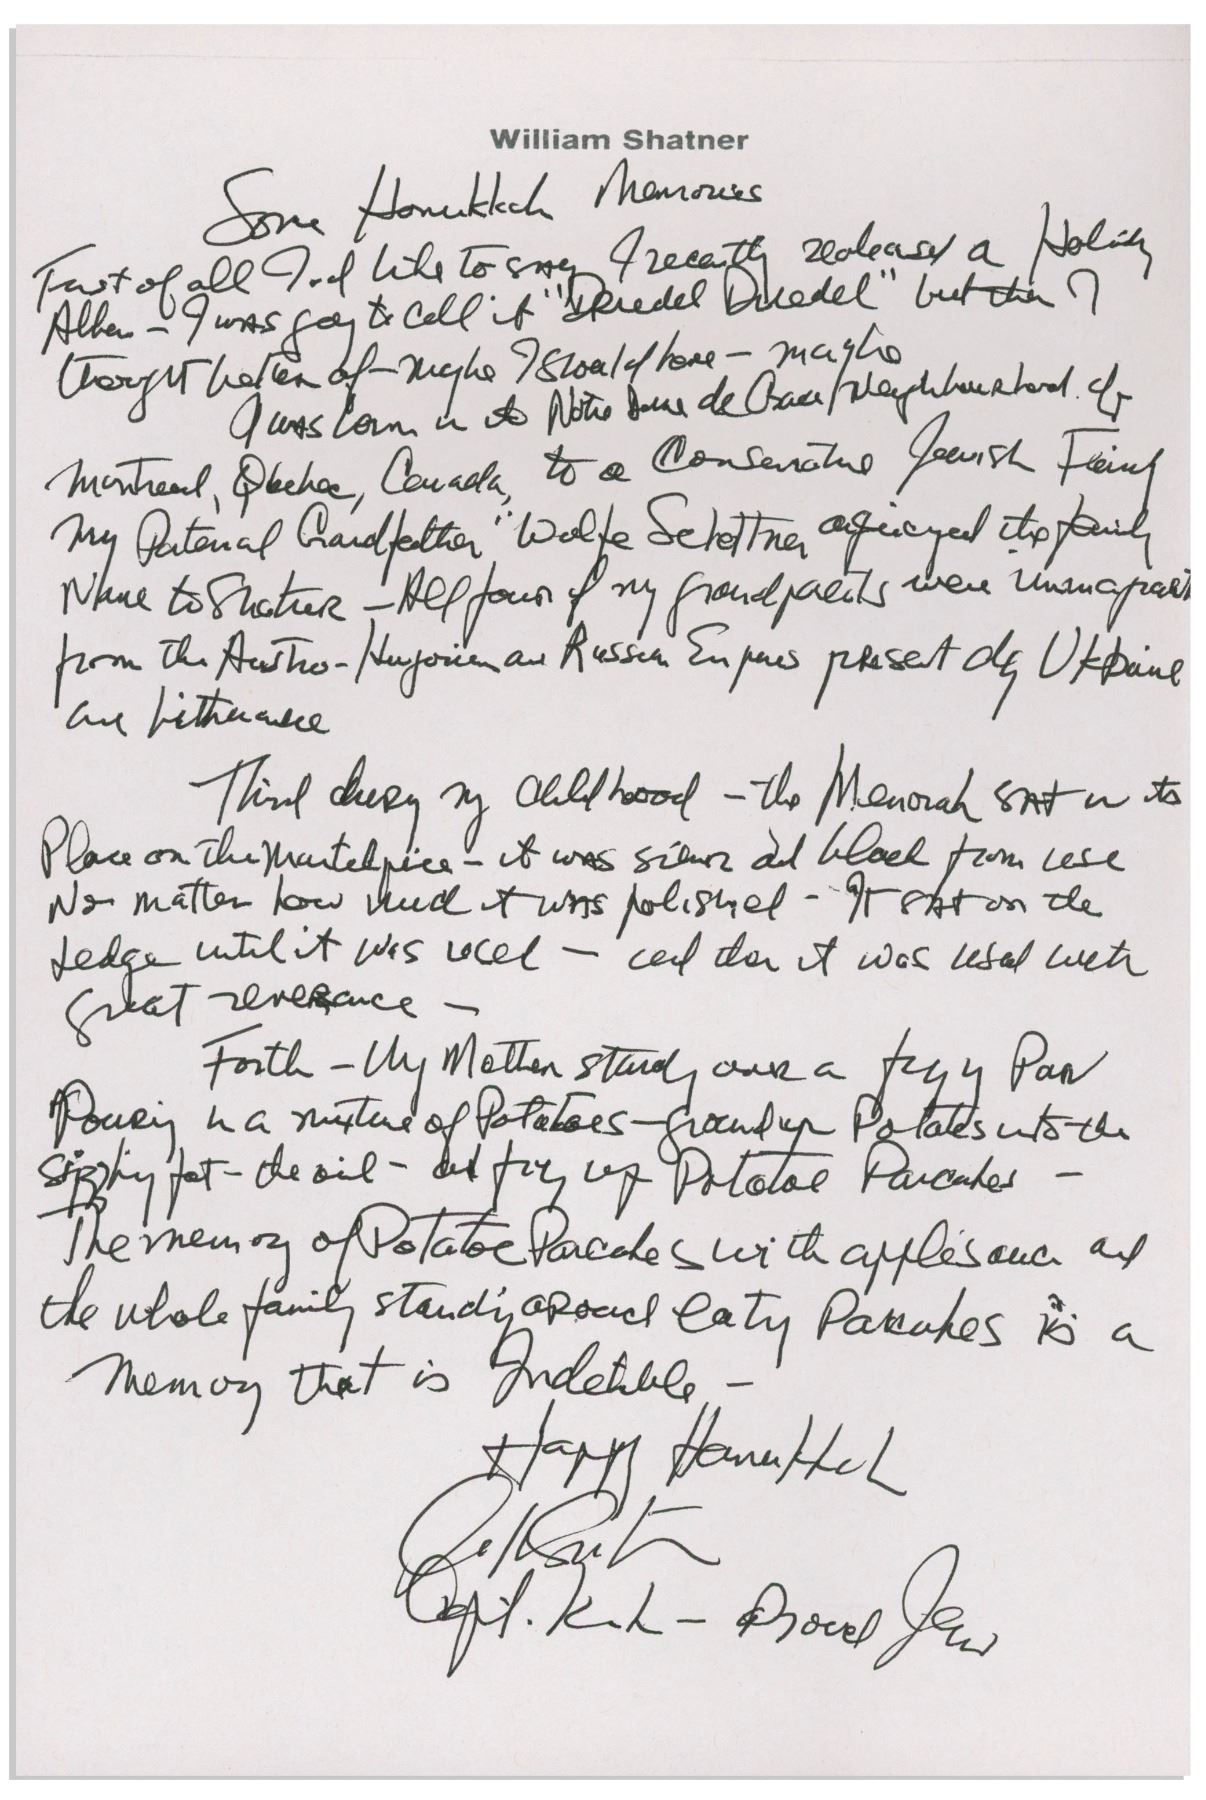 William Shatner
Some Hanukkah Memories
First of all I'd like to say I recently released a Holiday
Album - I was going to call it "Dreidel Dreidel" but then I
thought better of - maybe I should have - maybe
I was born in to Notre Dame de Grace/Neighbourhood of
Montreal, Quebec, Canada, to a Conservative Jewish Family
My Paternal Grandfather "Wolfe Schattner anglicized the family
Name to Shatner - All four of my grandparents were immigrants
from the Austro-Hungarian and Russian Empires present day Ukraine
and Lithuania
Third during my childhood - the Menorah sat in its
Place on the Mantelpiece - it was silver and black from use
No matter how much it was polished - It sat on the
Ledge until it was used - and then it was used with
great reverance -
Forth - My Mother standing over a frying Pan
Pouring in a mixture of Potatoes - ground up Potatoes into the
sizzling fat - the oil - and frying up Potatoe Pancakes -
The memory of Potatoe Pancakes with applesauce and
the whole family standing around eating Pancakes is a
Memory that is Indelible -
Happy Hanukkah
Capt. Kirk - Proud Jew